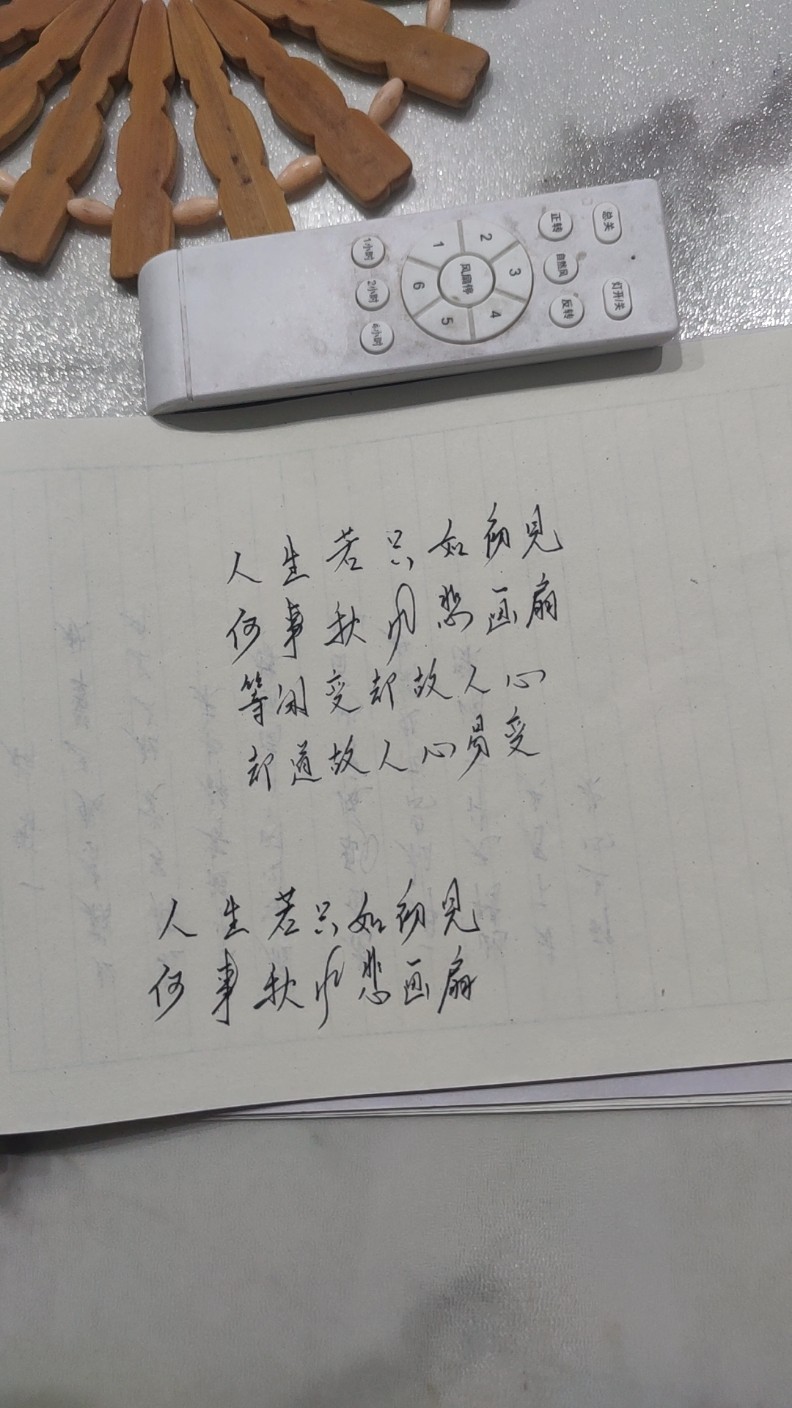 总关
灯开/关
正转
自然风
反转
1
2
3
4
5
6
风扇停
1小时
2小时
4小时
人生若只如初见
何事秋风悲画扇
等闲变却故人心
却道故人心易变
人生若只如初见
何事秋风悲画扇